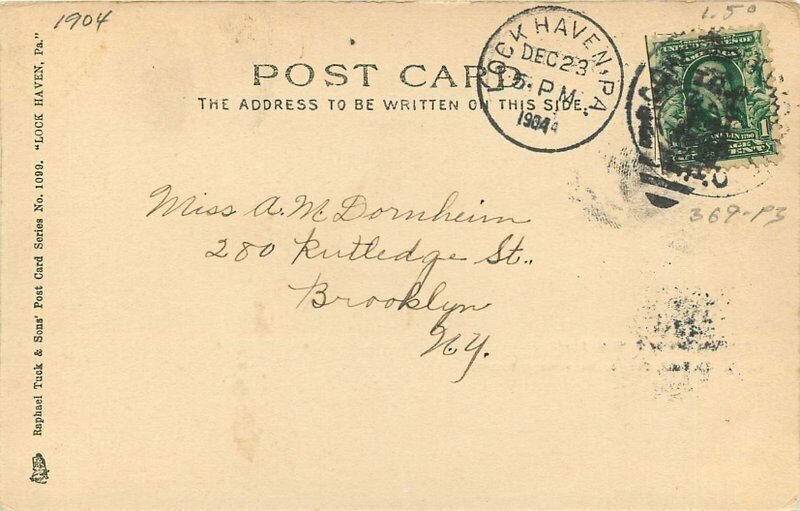 1904
1.50
LOCK HAVEN, PA.
DEC 23
5 - P M
1904
POST CARD
THE ADDRESS TO BE WRITTEN ON THIS SIDE.
369-P3
Miss A. M. Dornheim
280 Rutledge St.,
Brooklyn
N.Y.
Raphael Tuck & Sons' Post Card Series No. 1099. "LOCK HAVEN, Pa."